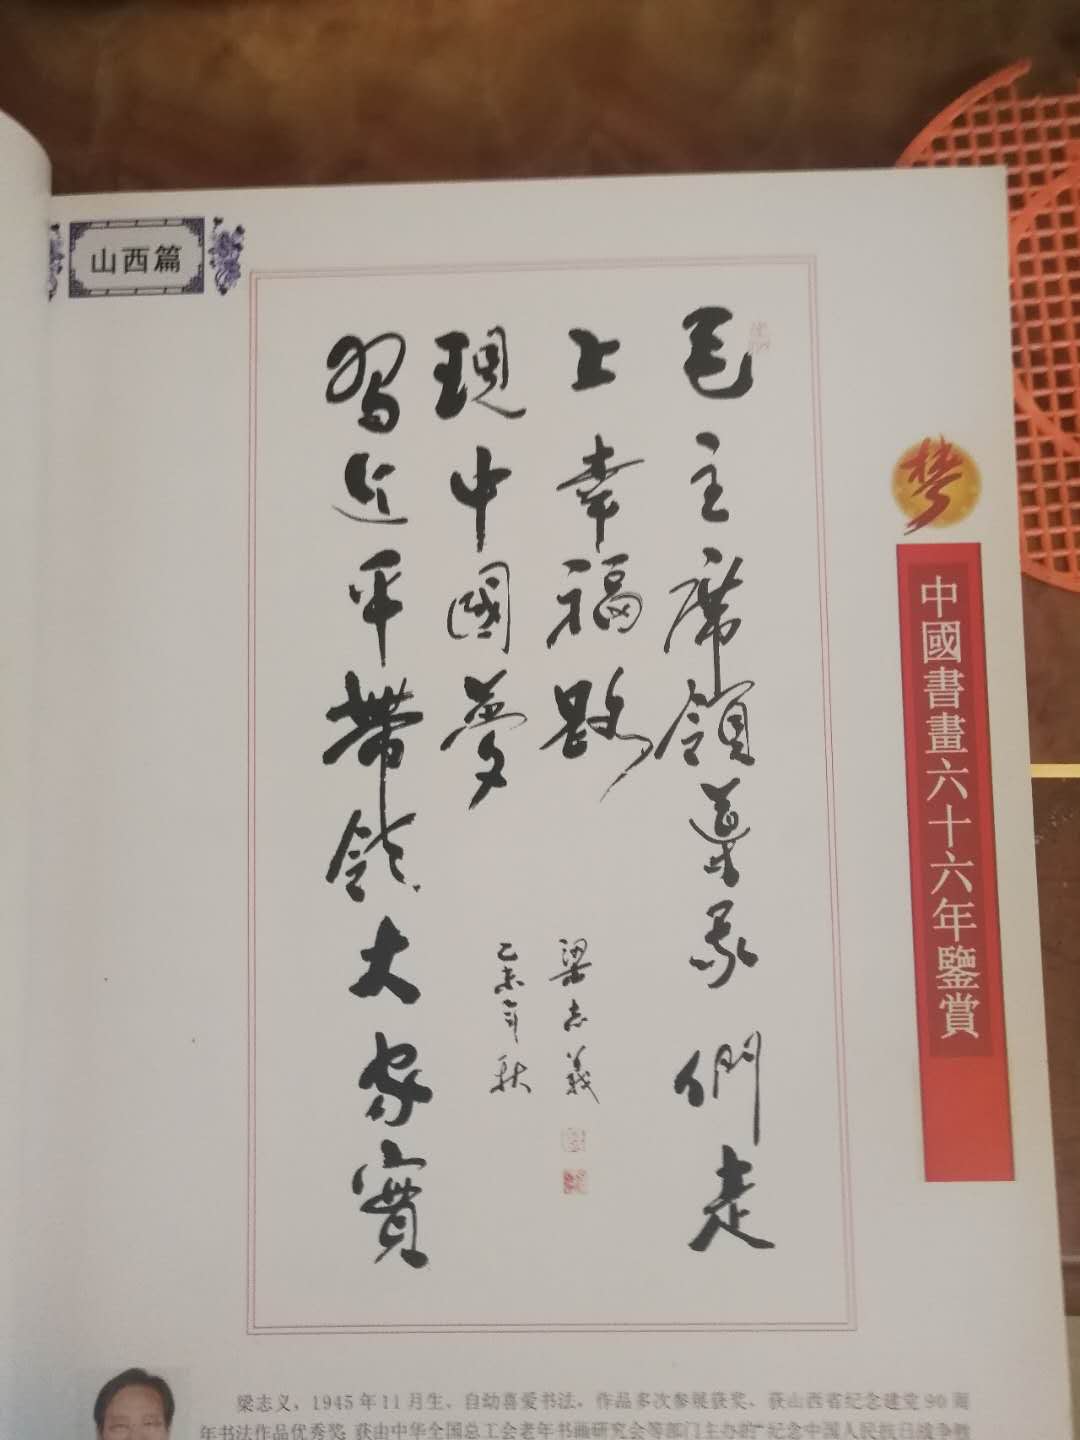 山西篇
毛主席領導我們走
上幸福路
習近平帶領大家實
現中國夢
乙未年秋
梁志義
梦
中國書畫六十六年鑒賞
梁志义，1945年11月生，自幼喜爱书法，作品多次参展获奖，获山西省纪念建党90周
年书法作品优秀奖，获由中华全国总工会老年书画研究会等部门主办的“纪念中国人民抗日战争胜